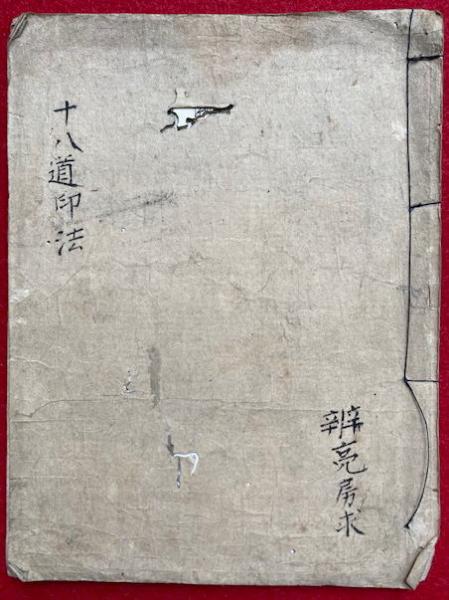 十八道印法
辨亮房求